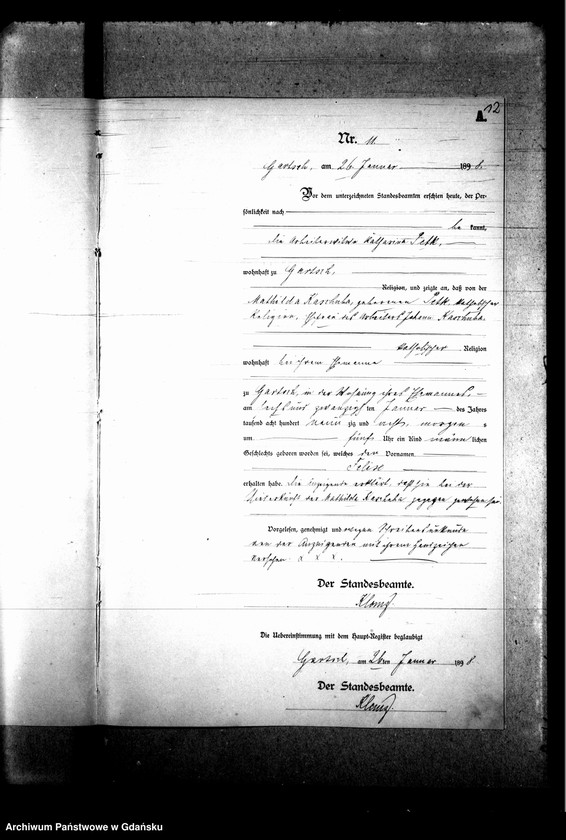 A. 12
Nr. 11
Gartsch, am 26 Januar 1898.
Vor dem unterzeichneten Standesbeamten erschien heute, der Per-
sönlichkeit nach
be kannt,
die Arbeiterwittwe Katharina Petk,
wohnhaft zu Gartsch,
Religion, und zeigte an, daß von der
Mathilda Kaschuba, geborenen Petk, katholischer
Religion, Ehefrau des Arbeiters Johann Kaschuba
katholischer Religion
wohnhaft bei ihrem Ehemanne
zu Gartsch, in der Wohnung ihres Ehemannes,
am sechs und zwanzigsten Januar des Jahres
tausend acht hundert neun zig und acht, morgens
um fünf Uhr ein Kind männ lichen
Geschlechts geboren worden sei, welches den Vornamen
erhalten habe. Die Anzeigende erklärt, daß sie bei der
Niederkunft der Mathilda Kaschuba zugegen gewesen sei.
Vorgelesen, genehmigt und wegen Schreibensunkunde
von der Anzeigenden mit ihrem Handzeichen
versehen x x x.
Der Standesbeamte.
Die Uebereinstimmung mit dem Haupt-Register beglaubigt
Gartsch, am 26ten Januar 1898.
Der Standesbeamte.
Archiwum Państwowe w Gdańsku